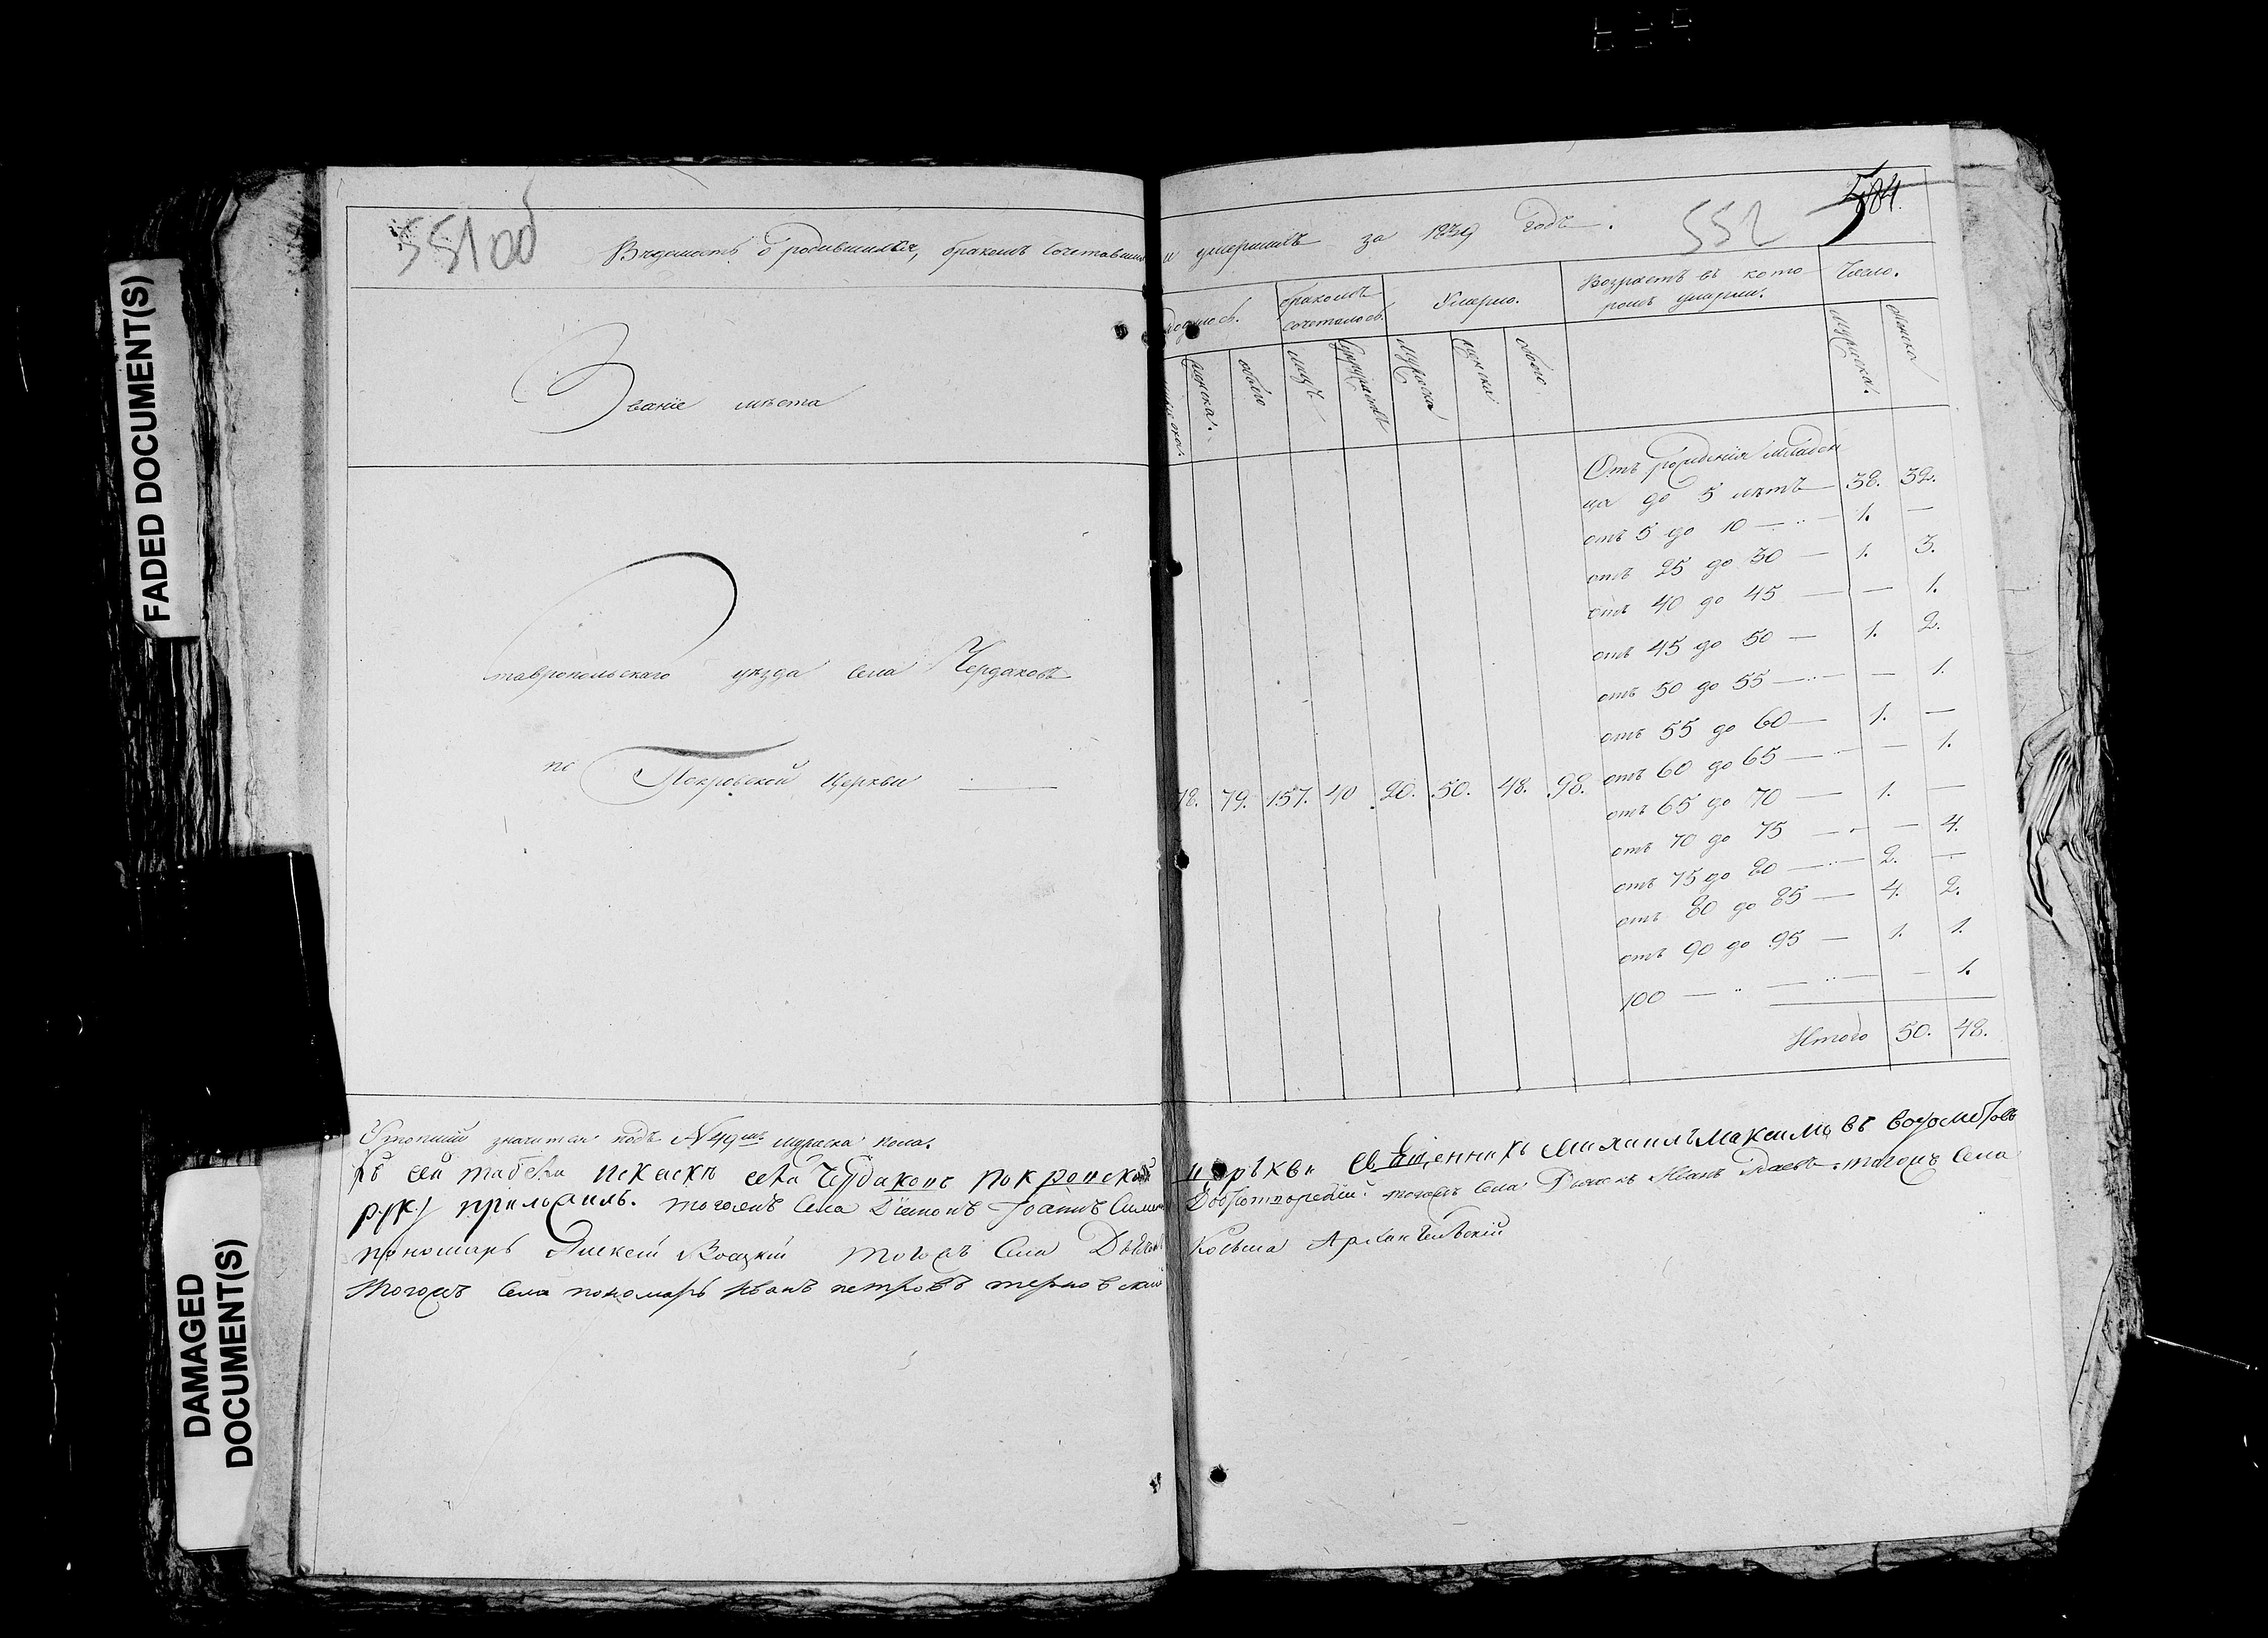 FADED DOCUMENT(S)
DAMAGED DOCUMENT(S)
551 об
552
584.
Вѣдомость о родившихся, бракомъ сочетавших и умершихъ за 1839 годъ.
Званіе мѣста
родилось.
бракомъ сочеталось.
Умерло.
Возрастъ въ которомъ умерли.
Число.
женска.
обоего
лицъ
мужеска
женска
обоего
мужеска.
женска
Ставропольскаго уѣзда села Чердаковъ
по Покровской Церкви
78. 79. 157. 40. 20. 50. 48. 98.
Отъ рожденія младен
ца до 5 лѣтъ — 38. 32.
отъ 5 до 10 — 1. —
отъ 25 до 30 — 1. 3.
отъ 40 до 45 — — 1.
отъ 45 до 50 — 1. 2.
отъ 50 до 55 — — 1.
отъ 55 до 60 — 1. —
отъ 60 до 65 — — 1.
отъ 65 до 70 — 1. —
отъ 70 до 75 — — 4.
отъ 75 до 80 — 2. —
отъ 80 до 85 — 4. 2.
отъ 90 до 95 — 1. 1.
100 — — 1.
Итого 50. 48.
значится подъ № 49мъ мужеска пола.
Къ сей табели села Чердаковъ Покровской церькви священникъ Михаилъ Максимовъ
руку приложилъ. тогожъ села Діаконъ Іоаннъ Добротворскій тогожъ села Дьячекъ Иванъ тогожъ села
пономарь Алексей тогожъ села Козьма Архангельскій
тогожъ села пономарь Иванъ петровъ терновскій